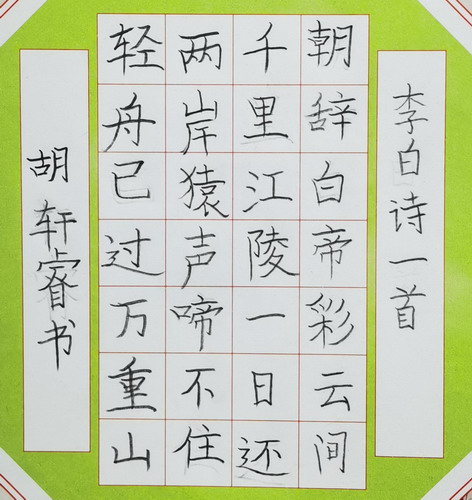 李白诗一首
朝辞白帝彩云间
千里江陵一日还
两岸猿声啼不住
轻舟已过万重山
胡轩睿书